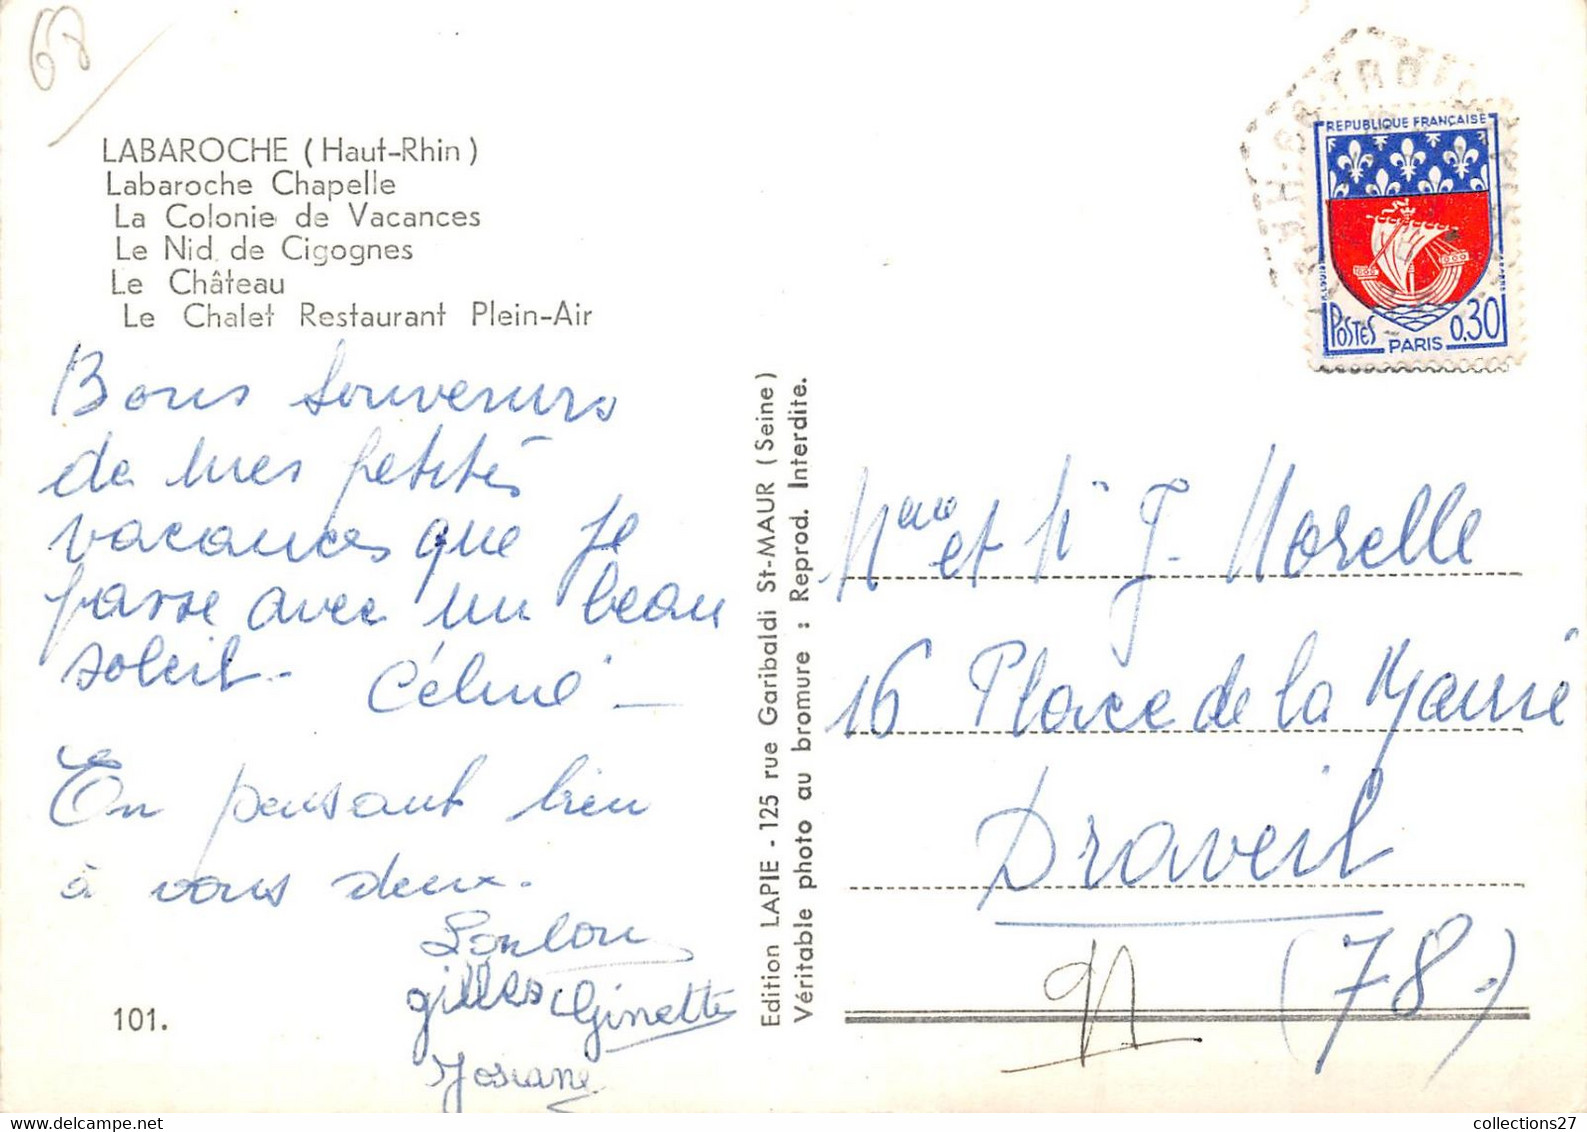 68
LABAROCHE (Haut-Rhin)
Labaroche Chapelle
La Colonie de Vacances
Le Nid de Cigognes
Le Château
Le Chalet Restaurant Plein-Air
Bons souvenirs
de mes petites
vacances que je
passe avec un beau
soleil. Céline
En pensant bien
à vous deux.
Loulou
gilles Ginette
Josiane
101.
Edition LAPIE - 125 rue Garibaldi St-MAUR (Seine)
Véritable photo au bromure : Reprod. Interdite.
REPUBLIQUE FRANÇAISE
POSTES PARIS 0,30
Mme et Mr J. Morelle
16 Place de la Mairie
Draveil
(78.)
collections27